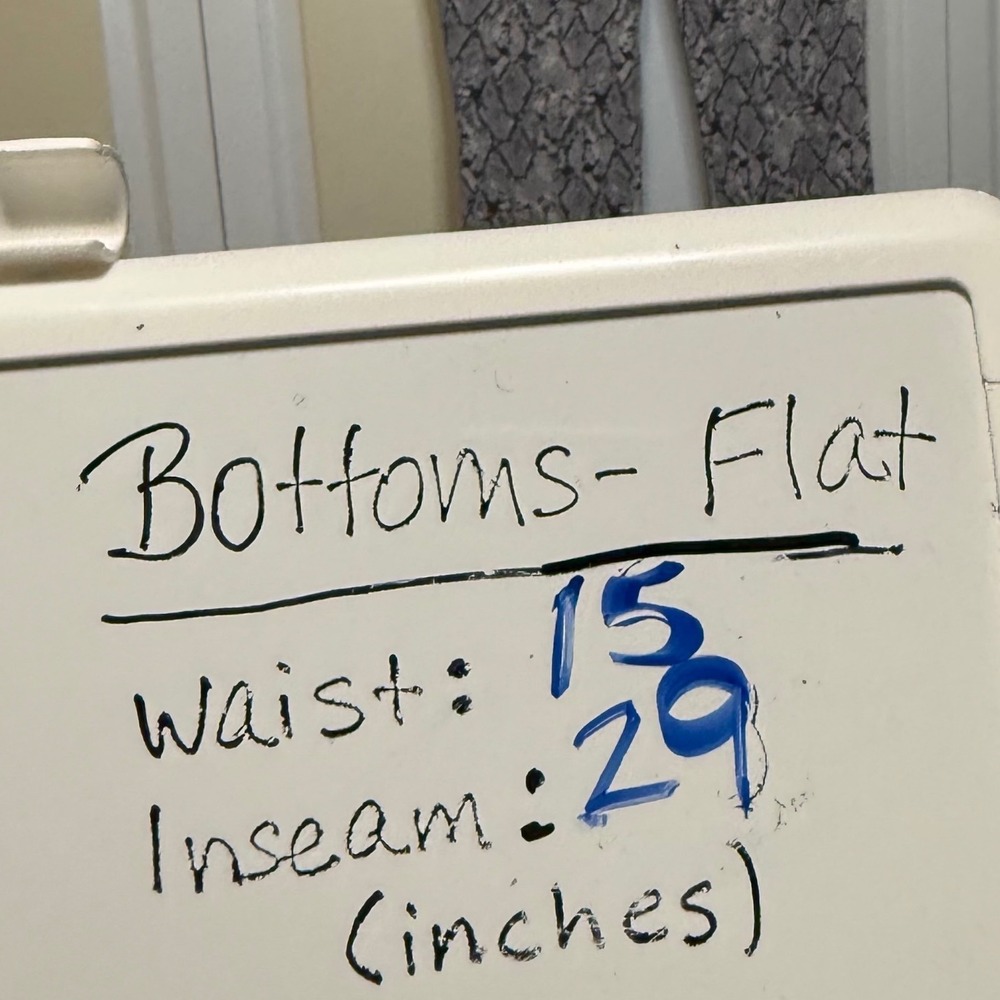 Bottoms- Flat
Waist: 15
Inseam: 29
(inches)